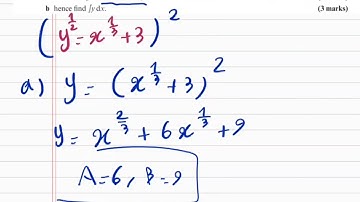 b hence find ∫y dx. (3 marks)
(y^{1/2} = x^{1/3} + 3)^2
a) y = (x^{1/3} + 3)^2
y = x^{2/3} + 6x^{1/3} + 9
A=6, B=9